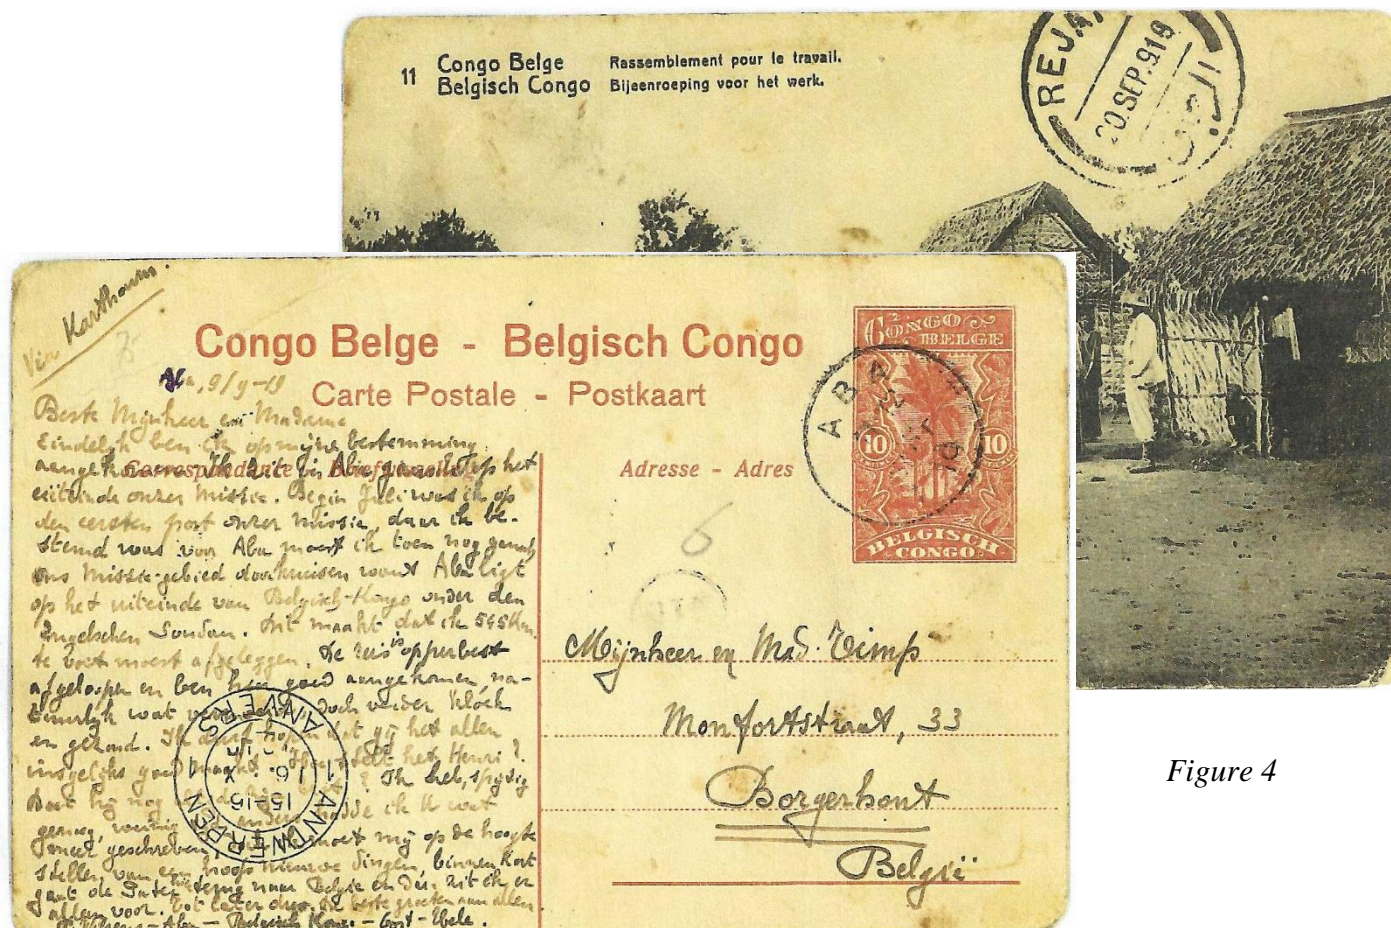 11 Congo Belge Rassemblement pour le travail.
Belgisch Congo Bijeenroeping voor het werk.
REJA
20.SEP.919
Via Karthoum.
Congo Belge - Belgisch Congo
Carte Postale - Postkaart
CONGO BELGE
10 10
BELGISCH CONGO
ABA
19
Correspondance - Briefwisseling
Adresse - Adres
6
Aba, 9/9-19
Beste Mijnheer en Madame
Eindelijk ben ik op mijne bestemming
aangekomen. Ik zit in Aba op het
uiteinde onzer Missie. Begin Juli was ik op
den eersten post onzer missie, daar ik be-
stemd was voor Aba moest ik toen nog
ons Missie-gebied doorkruisen want Aba ligt
op het uiteinde van Belgisch-Kongo onder den
Engelschen Soudan. Dit maakt dat ik 545 Km.
te voet moest afgeleggen. De reis is opperbest
afgeloopen en ben hier goed aangekomen, na-
tuurlijk wat doch verder kloek
en gezond. Ik durf hopen dat gij het allen
insgelijks goed maakt. het Henri?
? Ik heb, spijtig
genoeg, weinig anders hadde ik U wat
meer geschreven, moet mij op de hoogte
stellen van een hoop nieuwe dingen, binnen kort
gaat de Pater naar Belgie en dan zit ik er
alleen voor. Tot later dus. de beste groeten aan allen
Aba - Belgisch Kongo - Oost-Uele.
ANTWERPEN 1 ANVERS
15-16
Mijnheer en Mad. Timp
Monfortstraat, 33
Borgerhout
België
Figure 4